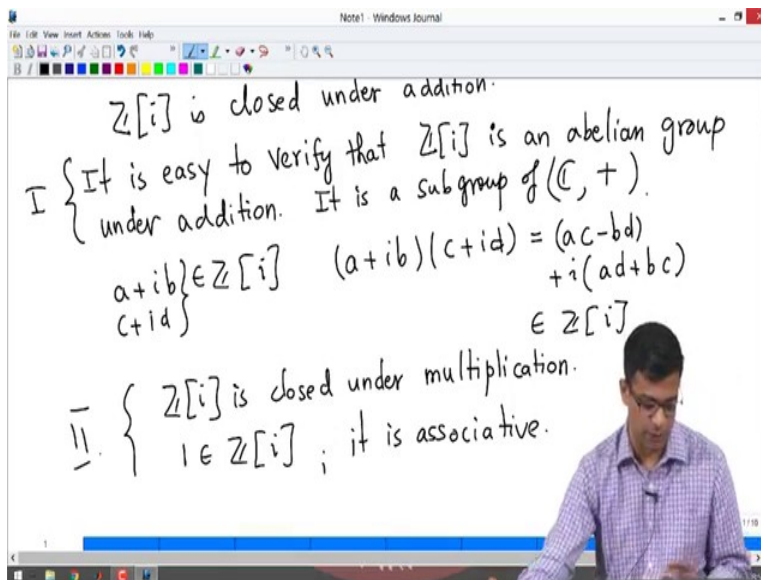 Note1 - Windows Journal
File Edit View Insert Actions Tools Help
B I
ℤ[i] is closed under addition.
I { It is easy to verify that ℤ[i] is an abelian group
under addition. It is a subgroup of (ℂ, +).
a+ib } ∈ ℤ[i] (a+ib)(c+id) = (ac-bd)
c+id } +i(ad+bc)
∈ ℤ[i]
II { ℤ[i] is closed under multiplication.
1 ∈ ℤ[i] ; it is associative.
1